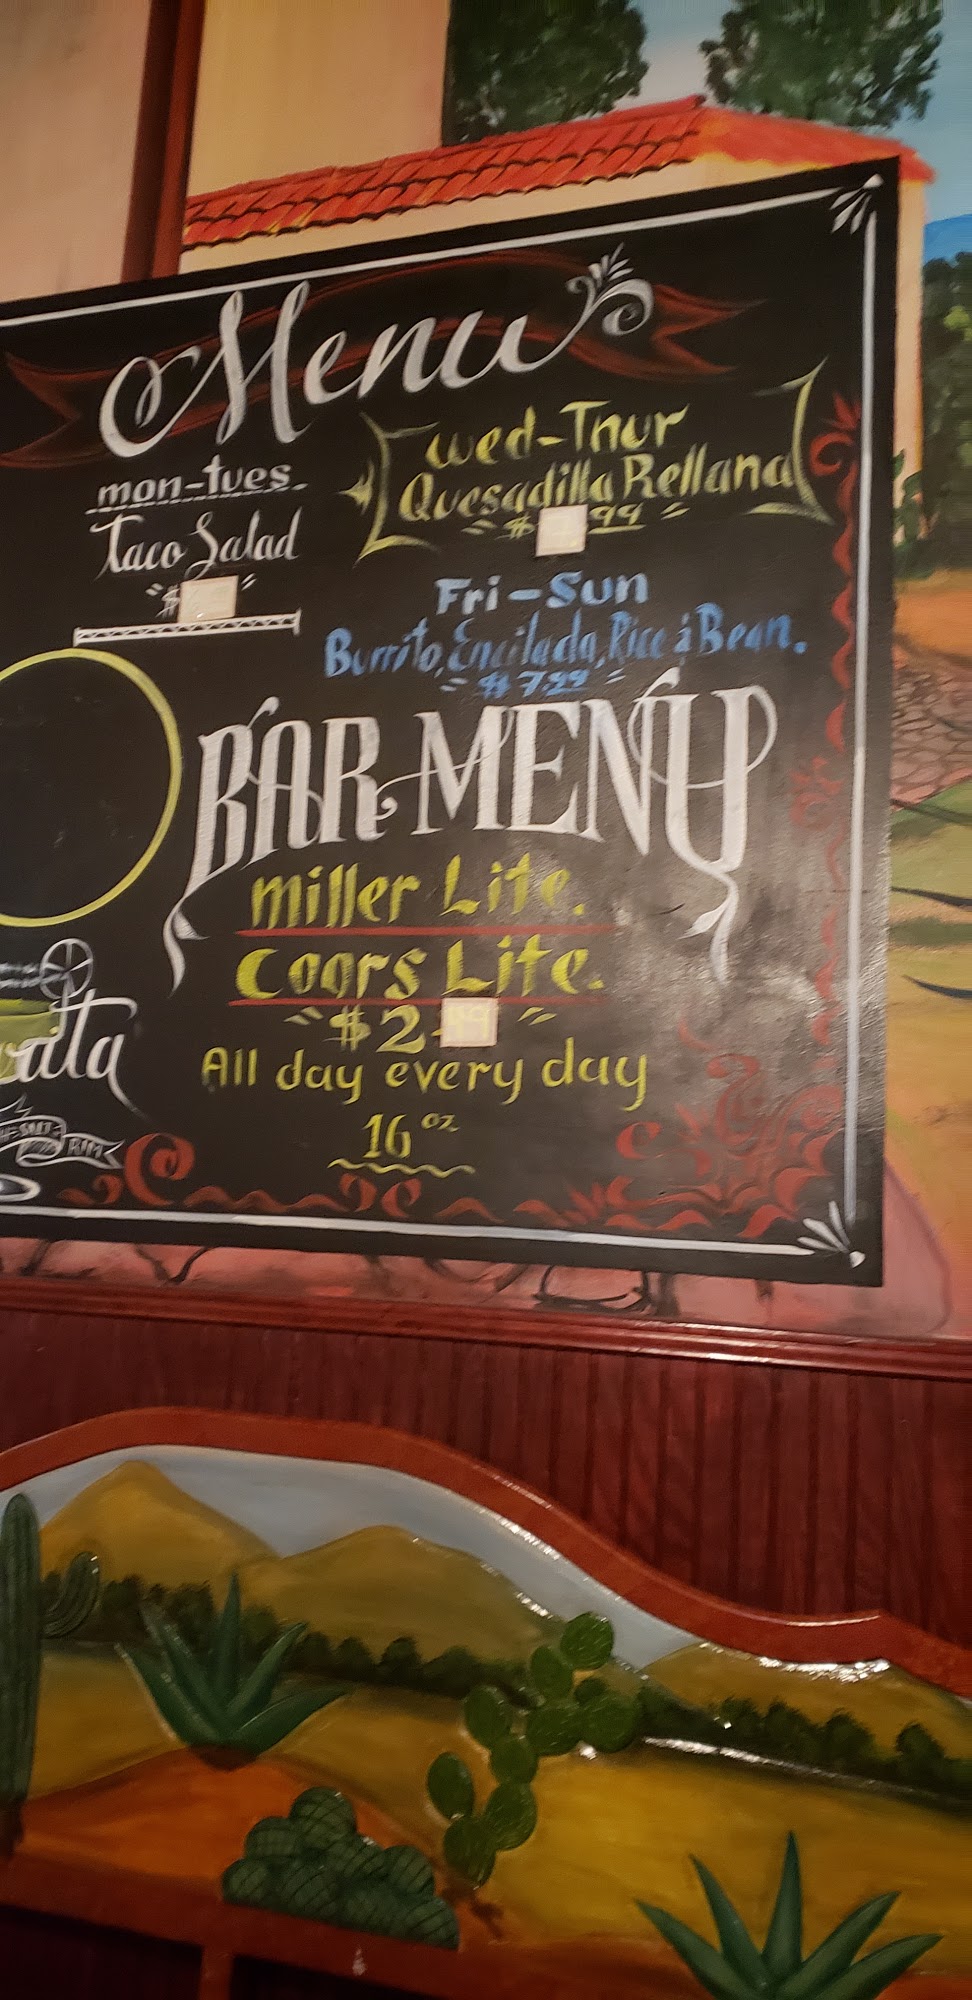 Menu
mon-tues
Taco Salad
"$
Wed-Thur
Quesadilla Rellana
"$ .99"
Fri-Sun
Burrito, Encilada, Rice á Bean.
"$7.99"
BAR MENU
Miller Lite.
Coors Lite.
"$2.99"
All day every day
16 oz
ata
RIM